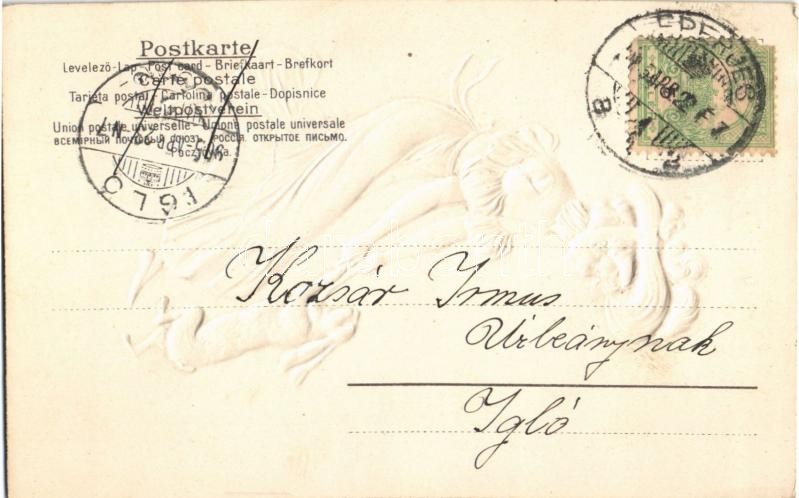 Postkarte
Levelező-Lap - Post card - Briefkaart - Brefkort
Carte postale
Tarjeta postal - Cartolina postale - Dopisnice
Weltpostverein
Union postale universelle - Unione postale universale
ВСЕМІРНЫЙ ПОЧТОВЫЙ СОЮЗ. РОССІЯ. ОТКРЫТОЕ ПИСЬМО.
IGLÓ
EPERJES
Kozsár Irmus
Urleánynak
Igló